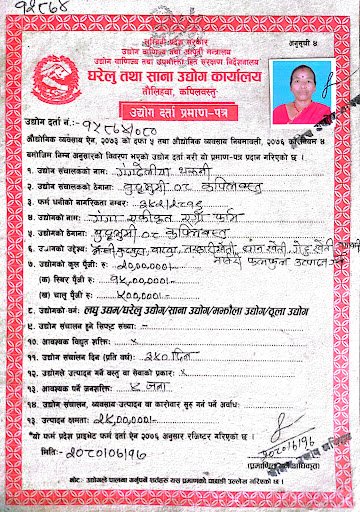 १५८७४
लुम्बिनी प्रदेश सरकार
उद्योग वाणिज्य तथा आपूर्ति मन्त्रालय
उद्योग वाणिज्य तथा उपभोक्ता हित संरक्षण निर्देशनालय
घरेलु तथा साना उद्योग कार्यालय
तौलिहवा, कपिलवस्तु
अनुसूची ४
उद्योग दर्ता प्रमाण-पत्र
उद्योग दर्ता नं.: १५८७४/०८०
औद्योगिक व्यवसाय ऐन, २०७३ को दफा ५ तथा औद्योगिक व्यवसाय नियमावली, २०७६ को नियम ४
बमोजिम निम्न अनुसारको विवरण भएको उद्योग दर्ता गरी यो प्रमाण-पत्र प्रदान गरिएको छ ।
१. उद्योग संचालकको नामः
२. उद्योग संचालकको ठेगानाः बुद्धभुमी ०८ कपिलवस्तु
३. फर्म धनीको नागरिकता नम्बरः
४. उद्योगको नामः गंगा एकीकृत कृषी फर्म
५. उद्योगको ठेगानाः बुद्धभुमी ०८ कपिलवस्तु
६. उद्योगको उद्देश्यः
७. उद्योगको कुल पूँजी रु.: २०,००,०००।-
(क) स्थिर पूँजी रु.: १५,००,०००।-
(ख) चालु पूँजी रु.: ५००,०००।-
८. उद्योगको वर्गः लघु उद्यम/घरेलु उद्योग/साना उद्योग/मझौला उद्योग/ठूला उद्योग
९. उद्योग संचालन हुने सिफ्ट संख्याः -
१०. आवश्यक विद्युत शक्तिः ×
११. उद्योग संचालन दिन (प्रति वर्ष): ३४० दिन
१२. उद्योगले उत्पादन गर्ने वस्तु वा सेवाको प्रकारः ×
१३. आवश्यक पर्ने जनशक्तिः ४ जना
१४. उद्योग संचालन, व्यवसाय उत्पादन वा कारोबार सुरु गर्न पर्ने अवधिः
१५. उत्पादन क्षमताः २५,००,०००।-
"यो फर्म प्रदेश प्राइभेट फर्म दर्ता ऐन २०७६ अनुसार रजिष्टर गरिएको छ ।"
मितिः- २०८०/०६/१६
२०८०/०६/१६
(प्रमाणित गर्ने अधिकृत)
नोटः- उद्योगले पालना गर्नुपर्ने शर्तहरु यस प्रमाणको पछाडी उल्लेख गरिएको छ ।